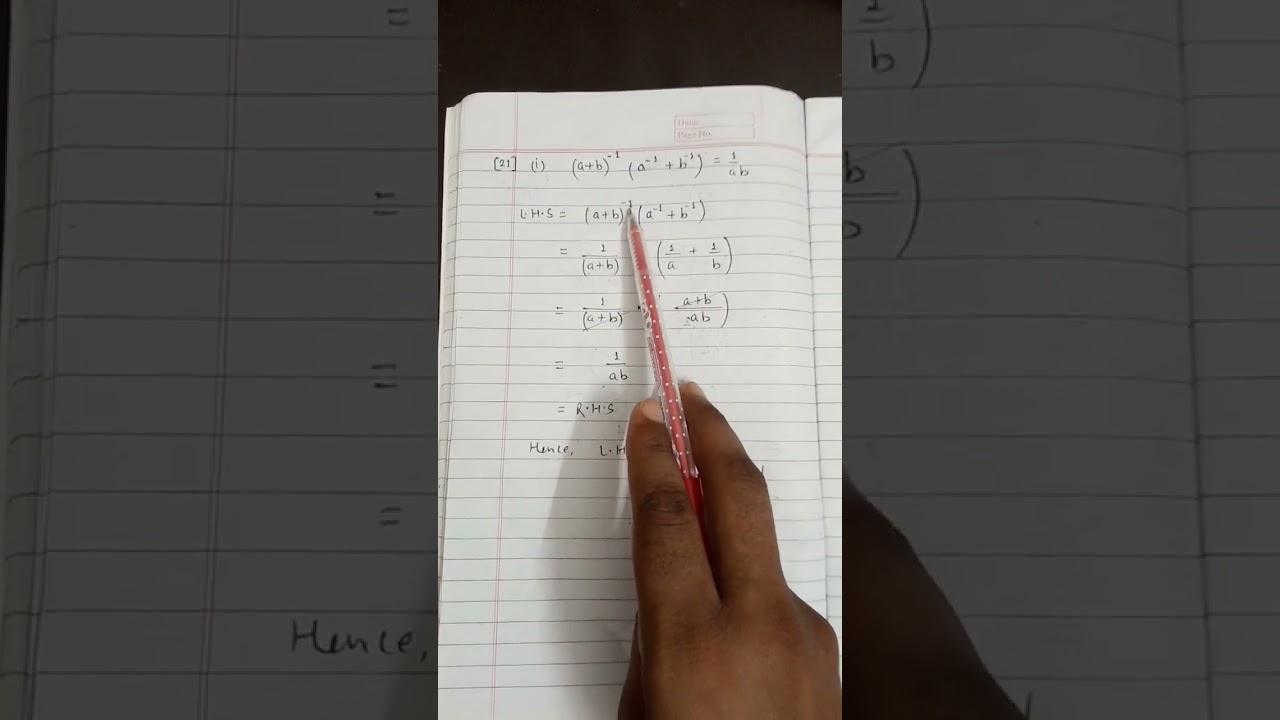 Date:
Page No.
[21] (i) (a+b)⁻¹ (a⁻¹ + b⁻¹) = 1/ab
L.H.S = (a+b)⁻¹ (a⁻¹ + b⁻¹)
= 1/(a+b) (1/a + 1/b)
= 1/(a+b) a+b/ab)
= 1/ab
= R.H.S
Hence, L.H